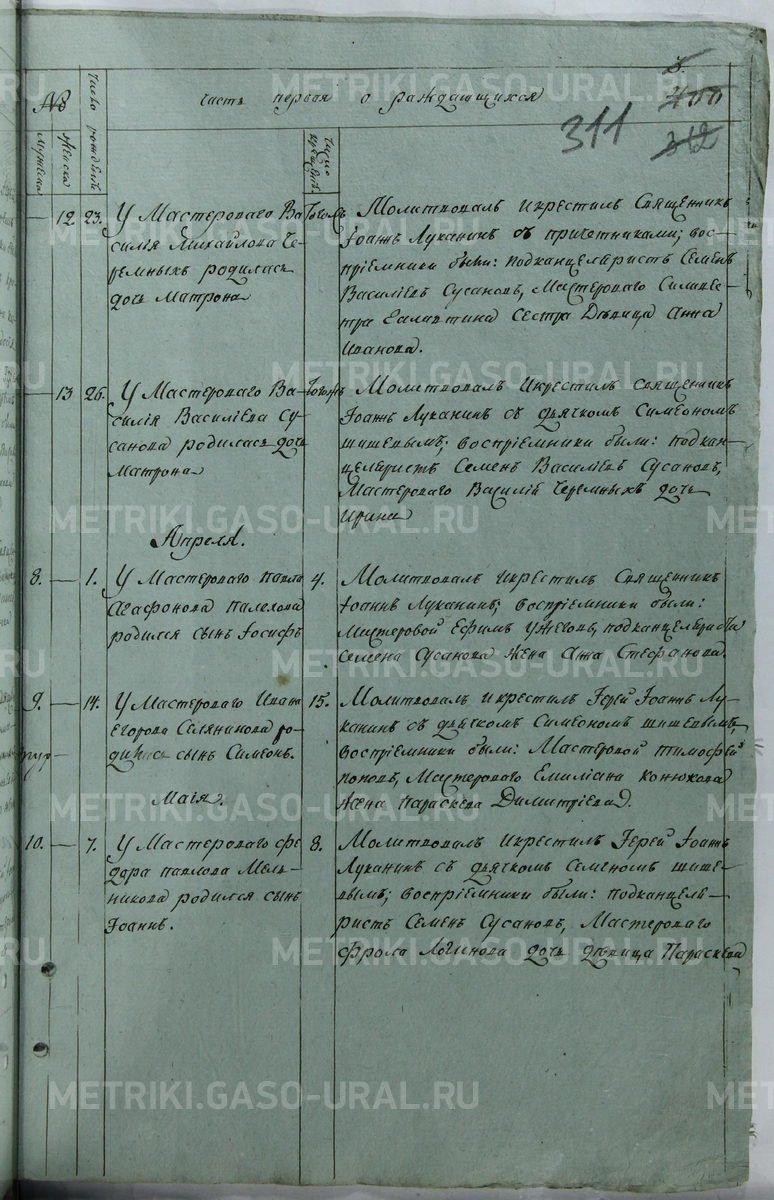 №
Мужеска
Женска
Число рожденія
Часть первая о раждающихся
Число крещенія
5.
311
312
— 12. 23.
У Мастероваго Ва-
силія Михайлова Че-
ремныхъ родилась
дочь Матрона
Тогожъ
Молитвовалъ и крестилъ Священникъ
Іоаннъ Луканинъ съ причетниками; вос-
пріемники были: подканцеляристъ Семенъ
Василіевъ Сусановъ, Мастероваго Силиве-
стра сестра дѣвица Анна
Иванова.
— 13 26.
У Мастероваго Ва-
силія Василіева Су-
санова родилась дочь
Матрона
Тогожъ
Молитвовалъ и крестилъ священникъ
Іоаннъ Луканинъ съ дьячкомъ Симеономъ
Шишевымъ; воспріемники были: подкан-
целяристъ Семенъ Василіевъ Сусановъ,
Мастероваго Василій Черемныхъ дочь
Ирина
Апреля.
8. — 1.
У Мастероваго Павла
Агафонова Палехова
родился сынъ Іосифъ
4.
Молитвовалъ и крестилъ Священникъ
Іоаннъ Луканинъ; воспріемники были:
Мастеровой Ефимъ Ужеговъ, подканцеляриста
Семена Сусанова жена Анна Стефанова.
9. — 14.
У Мастероваго Ивана
Егорова Селянинова ро-
дился сынъ Симеонъ.
15.
Молитвовалъ и крестилъ Іерей Іоаннъ Лу-
канинъ съ дьячкомъ Симеономъ Шишевымъ,
воспріемники были: Мастеровой Тимофей
Поповъ, Мастероваго Емиліана Конюхова
жена Параскева Димитріева.
Маія.
10. — 7.
У Мастероваго Фе-
дора Павлова Мель-
никова родился сынъ
Іоаннъ.
8.
Молитвовалъ и крестилъ Іерей Іоаннъ
Луканинъ съ дьячкомъ Семеномъ Шише-
вымъ; воспріемники были: подканцеля-
ристъ Семенъ Сусановъ, Мастероваго
Фрола Логинова дочь дѣвица Параскева
METRIKI.GASO-URAL.RU